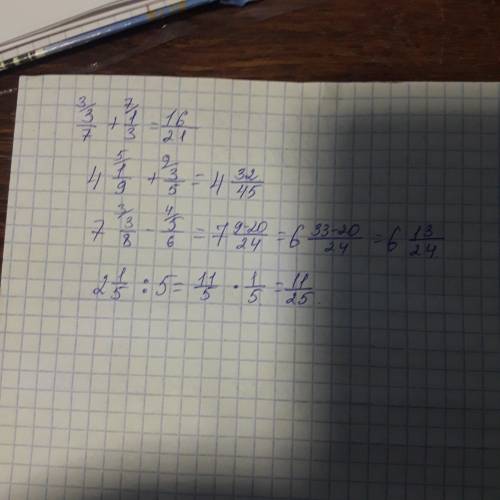 3/ 3/7 + 7/ 1/3 = 16/21
4 5/ 1/9 + 9/ 3/5 = 4 32/45
7 3/ 3/8 - 4/ 5/6 = 7 9-20/24 = 6 33-20/24 = 6 13/24
2 1/5 : 5 = 11/5 · 1/5 = 11/25.